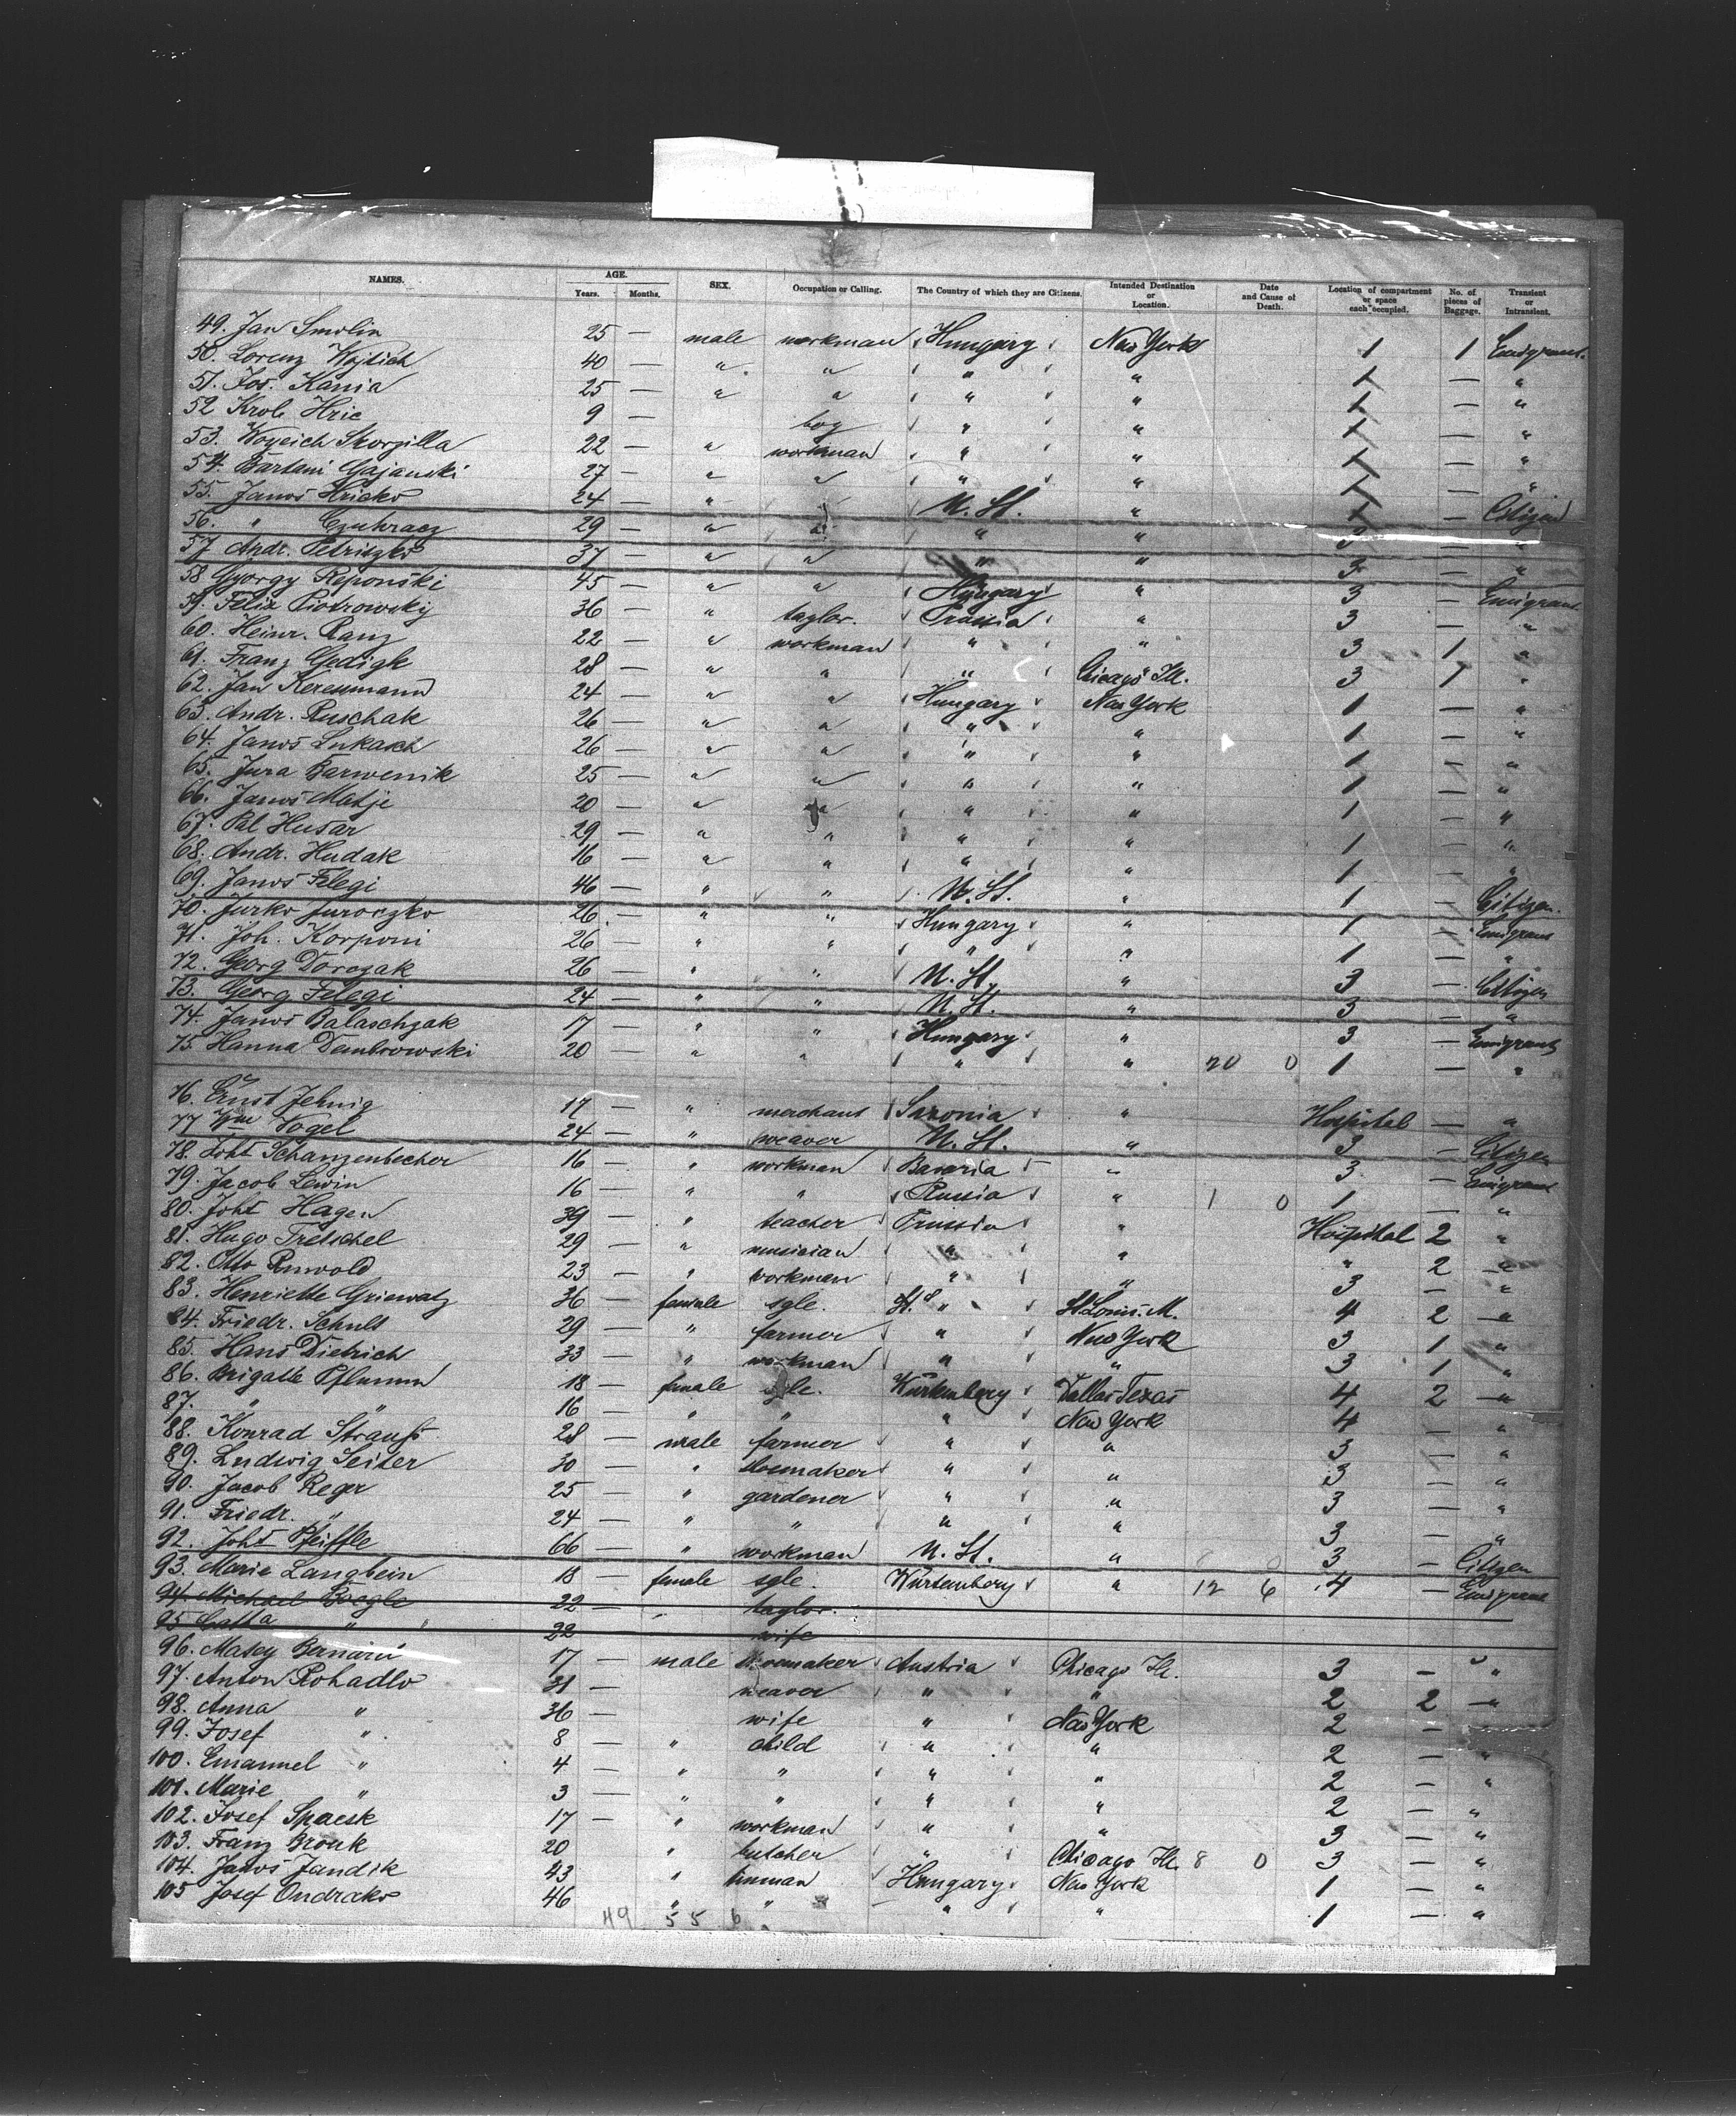 NAMES. AGE. Years. Months. SEX. Occupation or Calling. The Country of which they are Citizens. Intended Destination or Location. Date and Cause of Death. Location of compartment or space each occupied. No. of pieces of Baggage. Transient or Intransient.
49. Jan Smolin 25 — male workman Hungary New York 1 1 Emigrant.
50. Lorenz Wojtich 40 — " " " " 1 — "
51. Jos. Kania 25 — " " " " 1 — "
52 Krol Hric 9 — boy " " 1 — "
53. Woyeich Skorzilla 22 — " workman " " 1 — "
54. Bartani Gajanski 27 — " " " " 1 — "
55. Janos Hricko 24 — " " U. St. " 1 — Citizen
56. " Czuhracz 29 — " " " " 3 — "
57 Andr. Petriszko 37 — " " " " 3 — "
58 Gyorgy Reponski 45 — " " Hungary " 3 — Emigrant
59. Felix Piotrowsky 36 — " taylor. Prussia " 3 — "
60. Heinr. Ranz 22 — " workman " " 3 1 "
61. Franz Gedigk 28 — " " " Chicago Ill. 3 1 "
62. Jan Kereumann 24 — " " Hungary New York 1 — "
63. Andr. Ruschak 26 — " " " " 1 — "
64. Janos Lukasch 26 — " " " " 1 — "
65. Jura Barwenik 25 — " " " " 1 — "
66. Janos Matje 20 — " " " " 1 — "
67. Pal Husar 29 — " " " " 1 — "
68. Andr. Hudak 16 — " " " " 1 — "
69. Janos Felegi 46 — " " U. St. " 1 — Citizen.
70. Jurko Juroczko 26 — " " Hungary " 1 — Emigrant
71. Joh. Korponi 26 — " " " " 1 — "
72. Georg Dorozak 26 — " " U. St. " 3 — Citizen
73. Georg Felegi 24 — " " U. St. " 3 — "
74. Janos Balaschzak 17 — " " Hungary " 3 — Emigrant
75. Hanna Dembrowski 20 — " " " " 20 0 1 — "
76. Ernst Jehnig 17 — " merchant Saxonia " Hospital — "
77 Wm Vogel 24 — " weaver U. St. " 3 — Citizen
78. Joh. Schanzenbecher 16 — " workman Bavaria " 3 — Emigrant
79. Jacob Lewin 16 — " " Russia " 1 0 1 — "
80. Joh. Hagen 39 — " teacher Prussia " Hospital 2 "
81. Hugo Tretschel 29 — " musician " " " 2 "
82. Otto Runwold 23 — " workman " " 3 — "
83. Henriette Griewatz 36 — female sgle. " St Louis. M. 4 2 "
84. Friedr. Schult 29 — " farmer " New York 3 1 "
85. Hans Dietrich 33 — " workman " " 3 1 "
86. Brigatte Pflumm 18 — female sgle. Würtemberg Dallas Texas 4 2 "
87. " " 16 — " " " New York 4 — "
88. Konrad Strauss 28 — male farmer " " 3 — "
89. Ludwig Seiter 30 — " shoemaker " " 3 — "
90. Jacob Reger 25 — " gardener " " 3 — "
91. Friedr. " 24 — " " " " 3 — "
92. Joh. Pfeiffle 66 — " workman U. St. " 3 — Citizen
93. Marie Langbein 18 — female sgle. Würtemberg " 12 6 4 — Emigrant
94. Michael Boegle 22 — taylor.
95 " 22 — wife
96. Matey Bernard 17 — male shoemaker Austria Chicago Ill. 3 — "
97. Anton Rohadlo 31 — weaver " " 2 2 "
98. Anna " 36 — wife " New York 2 —
99. Josef " 8 — " child " " 2 — "
100. Emanuel " 4 — " " " " 2 — "
101. Marie " 3 — " " " " 2 — "
102. Josef Spacsk 17 — " workman " " 3 — "
103. Franz Brouk 20 " butcher " Chicago Ill. 8 0 3 — "
104. Janos Jandik 43 " Hungary New York 1 — "
105 Josef Ondrako 46 — " " " " 1 — "
49 55 6